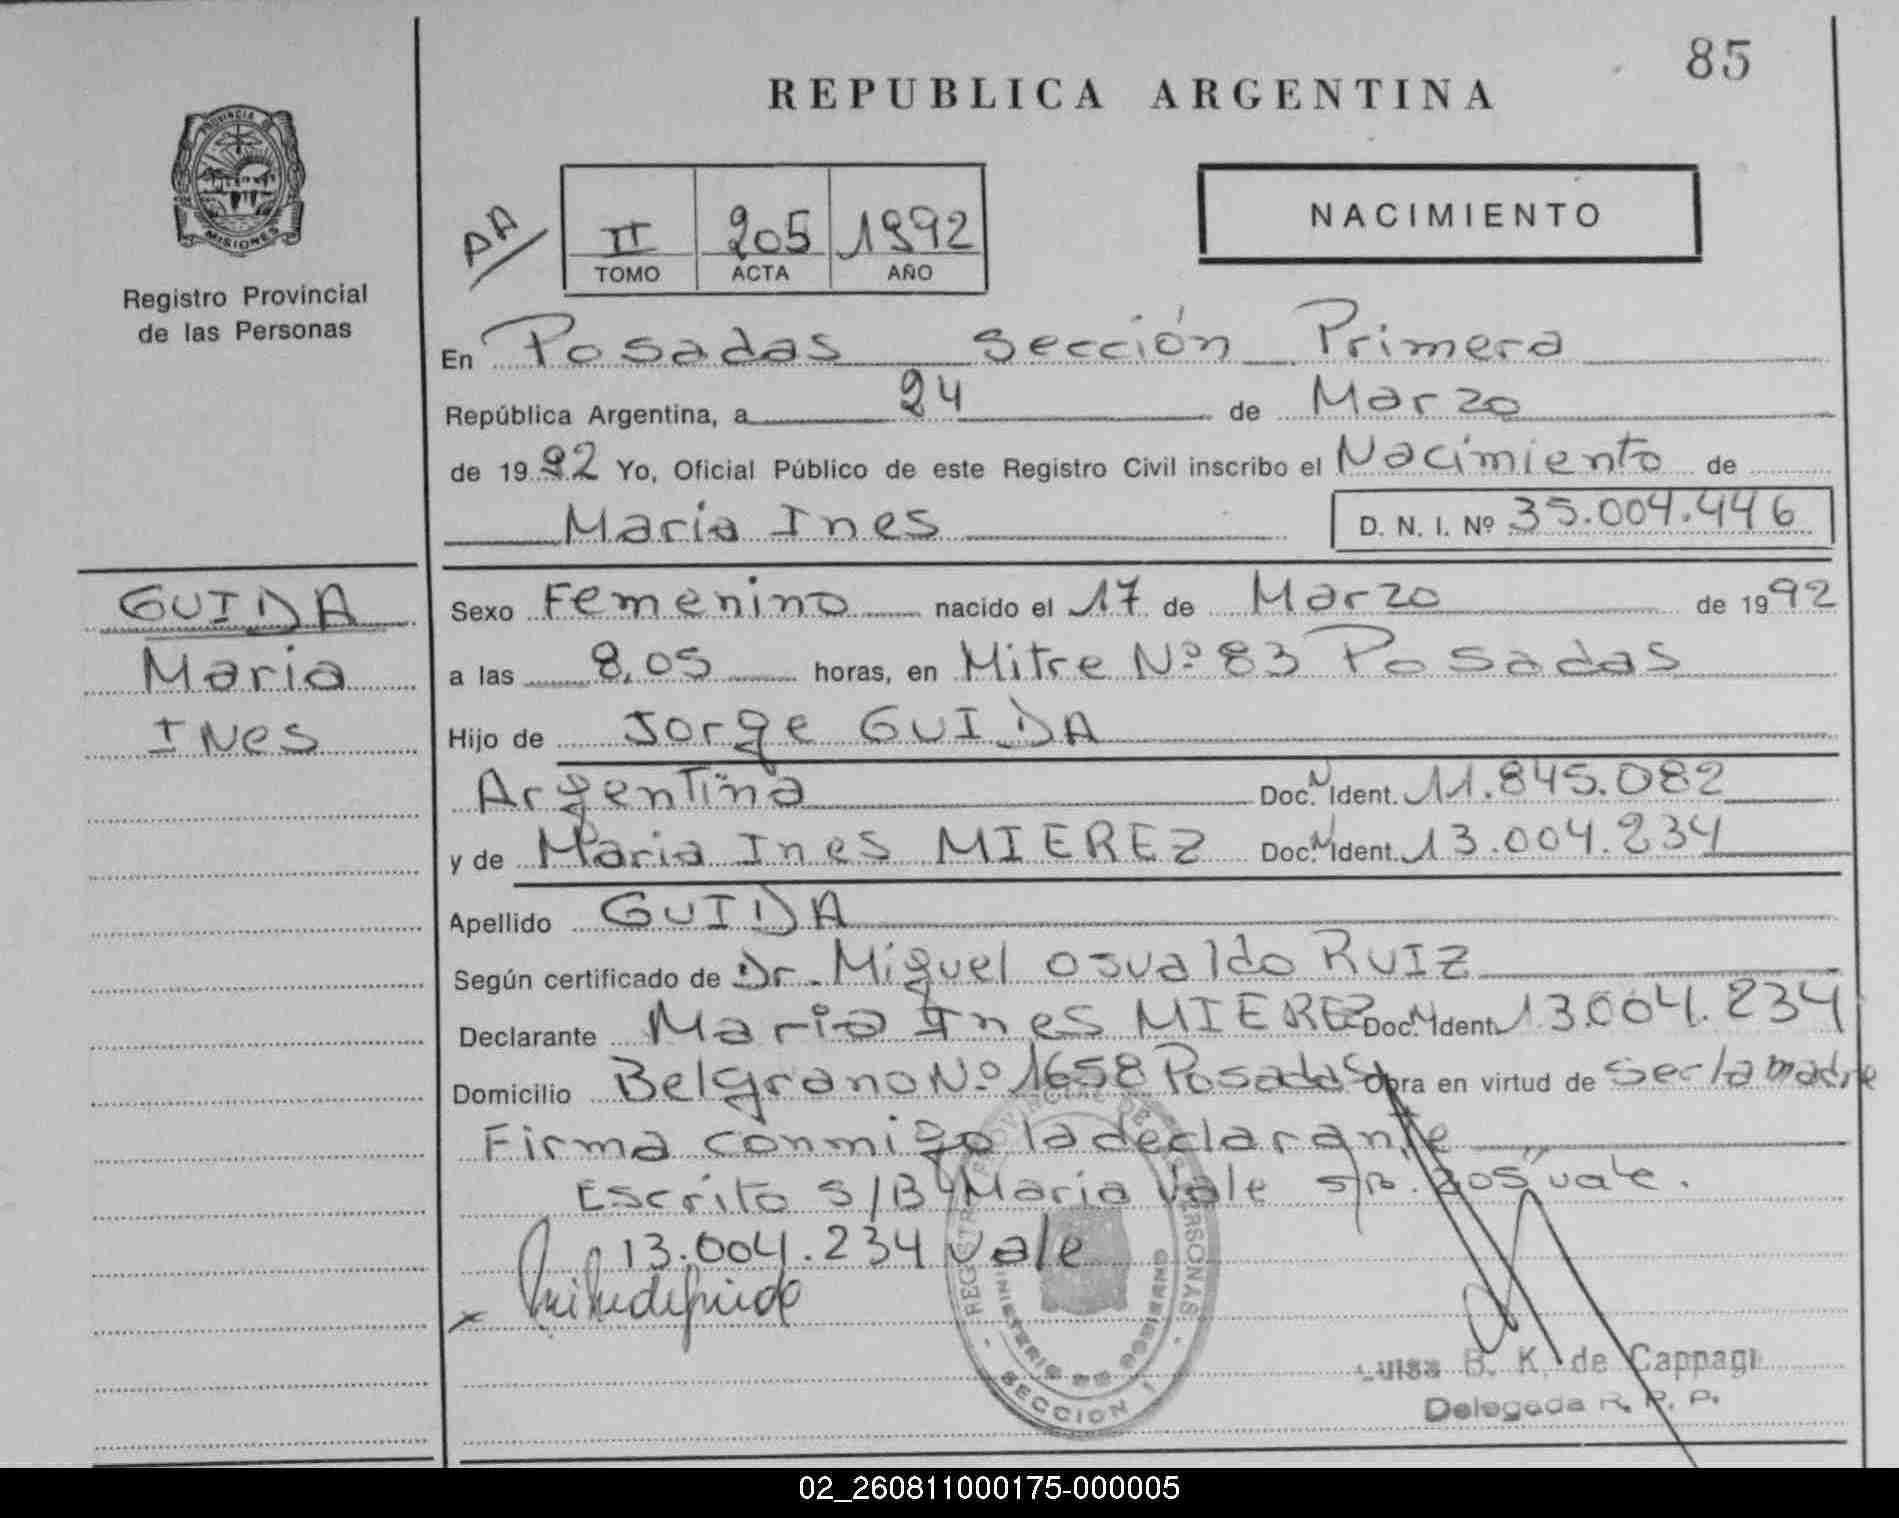 85
REPUBLICA ARGENTINA
PROVINCIA DE
MISIONES
Registro Provincial
de las Personas
AA/
II 205 1992
TOMO ACTA AÑO
NACIMIENTO
En Posadas Sección Primera
República Argentina, a 24 de Marzo
de 1992 Yo, Oficial Público de este Registro Civil inscribo el Nacimiento de
María Ines D. N. I. Nº 35.004.446
GUIDA
Maria
INes
Sexo Femenino nacido el 17 de Marzo de 1992
a las 8,05 horas, en Mitre Nº 83 Posadas
Hijo de Jorge GUIDA
Argentina Doc. N Ident. 11.845.082
y de Maria Ines MIEREZ Doc. N Ident. 13.004.234
Apellido GUIDA
Según certificado de Dr. Miguel Osvaldo RUIZ
Declarante Maria Ines MIEREZ Doc. N Ident. 13.004.234
Domicilio Belgrano Nº 1658 Posadas Obra en virtud de ser la madre
Firma conmigo la declarante
Escrito S/B "Maria Vale S/B. 205" vale.
13.004.234 vale
MINISTERIO DE GOBIERNO
SECCION 1
Luisa B. K. de Cappagi
Delegada R. P. P.
02_260811000175-000005